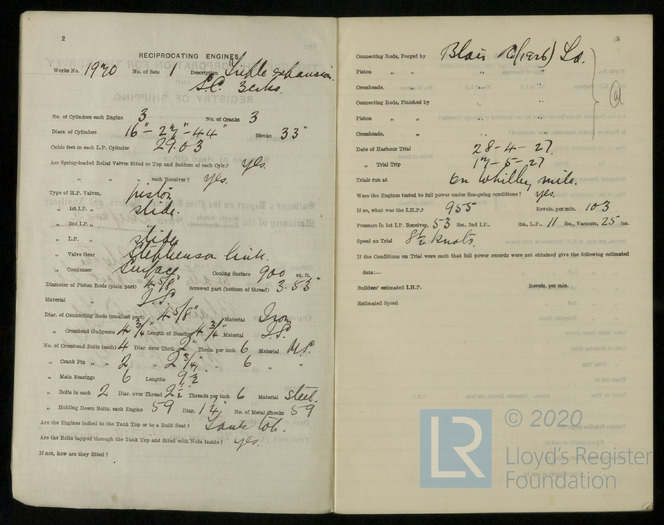 2
RECIPROCATING ENGINES
Works No. 1920 No. of Sets 1 Description Triple expansion
S.C. 3 cranks.
No. of Cylinders each Engine 3 No. of Cranks 3
Diars. of Cylinders 16" - 27" - 44" Stroke 33"
Cubic feet in each L.P. Cylinder 29.03
Are Spring-loaded Relief Valves fitted to Top and Bottom of each Cylr.? Yes.
„ „ each Receiver? Yes.
Type of H.P. Valves, piston
„ 1st I.P. „ slide.
„ 2nd I.P. „
„ L.P. „ slide
„ Valve Gear Stephenson link.
„ Condenser Surface Cooling Surface 900 sq. ft.
Diameter of Piston Rods (plain part) 4 5/8" Screwed part (bottom of thread) 3.53"
Material „ I.S.
Diar. of Connecting Rods (smallest part) 4 5/8" Material Iron
„ Crosshead Gudgeons 4 3/4" Length of Bearing 4 3/4" Material I.S.
No. of Crosshead Bolts (each) 4 Diar. over Thrd. 2" Thrds. per inch 6 Material M.S.
„ Crank Pin „ „ 2 „ 2 3/4" „ 6 „ „
„ Main Bearings 6 Lengths
„ Bolts in each 2 Diar. over Thread 2 1/2 Threads per inch 6 Material Steel.
„ Holding Down Bolts, each Engine 59 Diar. 1 1/4" No. of Metal Chocks 59
Are the Engines bolted to the Tank Top or to a Built Seat? Tank top.
Are the Bolts tapped through the Tank Top and fitted with Nuts Inside? yes.
If not, how are they fitted?
3
Connecting Rods, Forged by Blair & Co (1926) Ld.
Piston „ „
Crossheads, „
Connecting Rods, Finished by
Piston „ „
Crossheads, „
Date of Harbour Trial 28-4-27.
„ Trial Trip 17-5-27
Trials run at On Whitley mile.
Were the Engines tested to full power under Sea-going conditions? yes.
If so, what was the I.H.P.? 955 Revols. per min. 103
Pressure in 1st I.P. Receiver, 53 lbs., 2nd I.P., lbs., L.P., 11 lbs., Vacuum, 25 ins.
Speed on Trial 8 1/2 knots.
If the Conditions on Trial were such that full power records were not obtained give the following estimated
data:—
Builders' estimated I.H.P. Revols. per min.
Estimated Speed
© 2020
LR
Lloyd's Register
Foundation